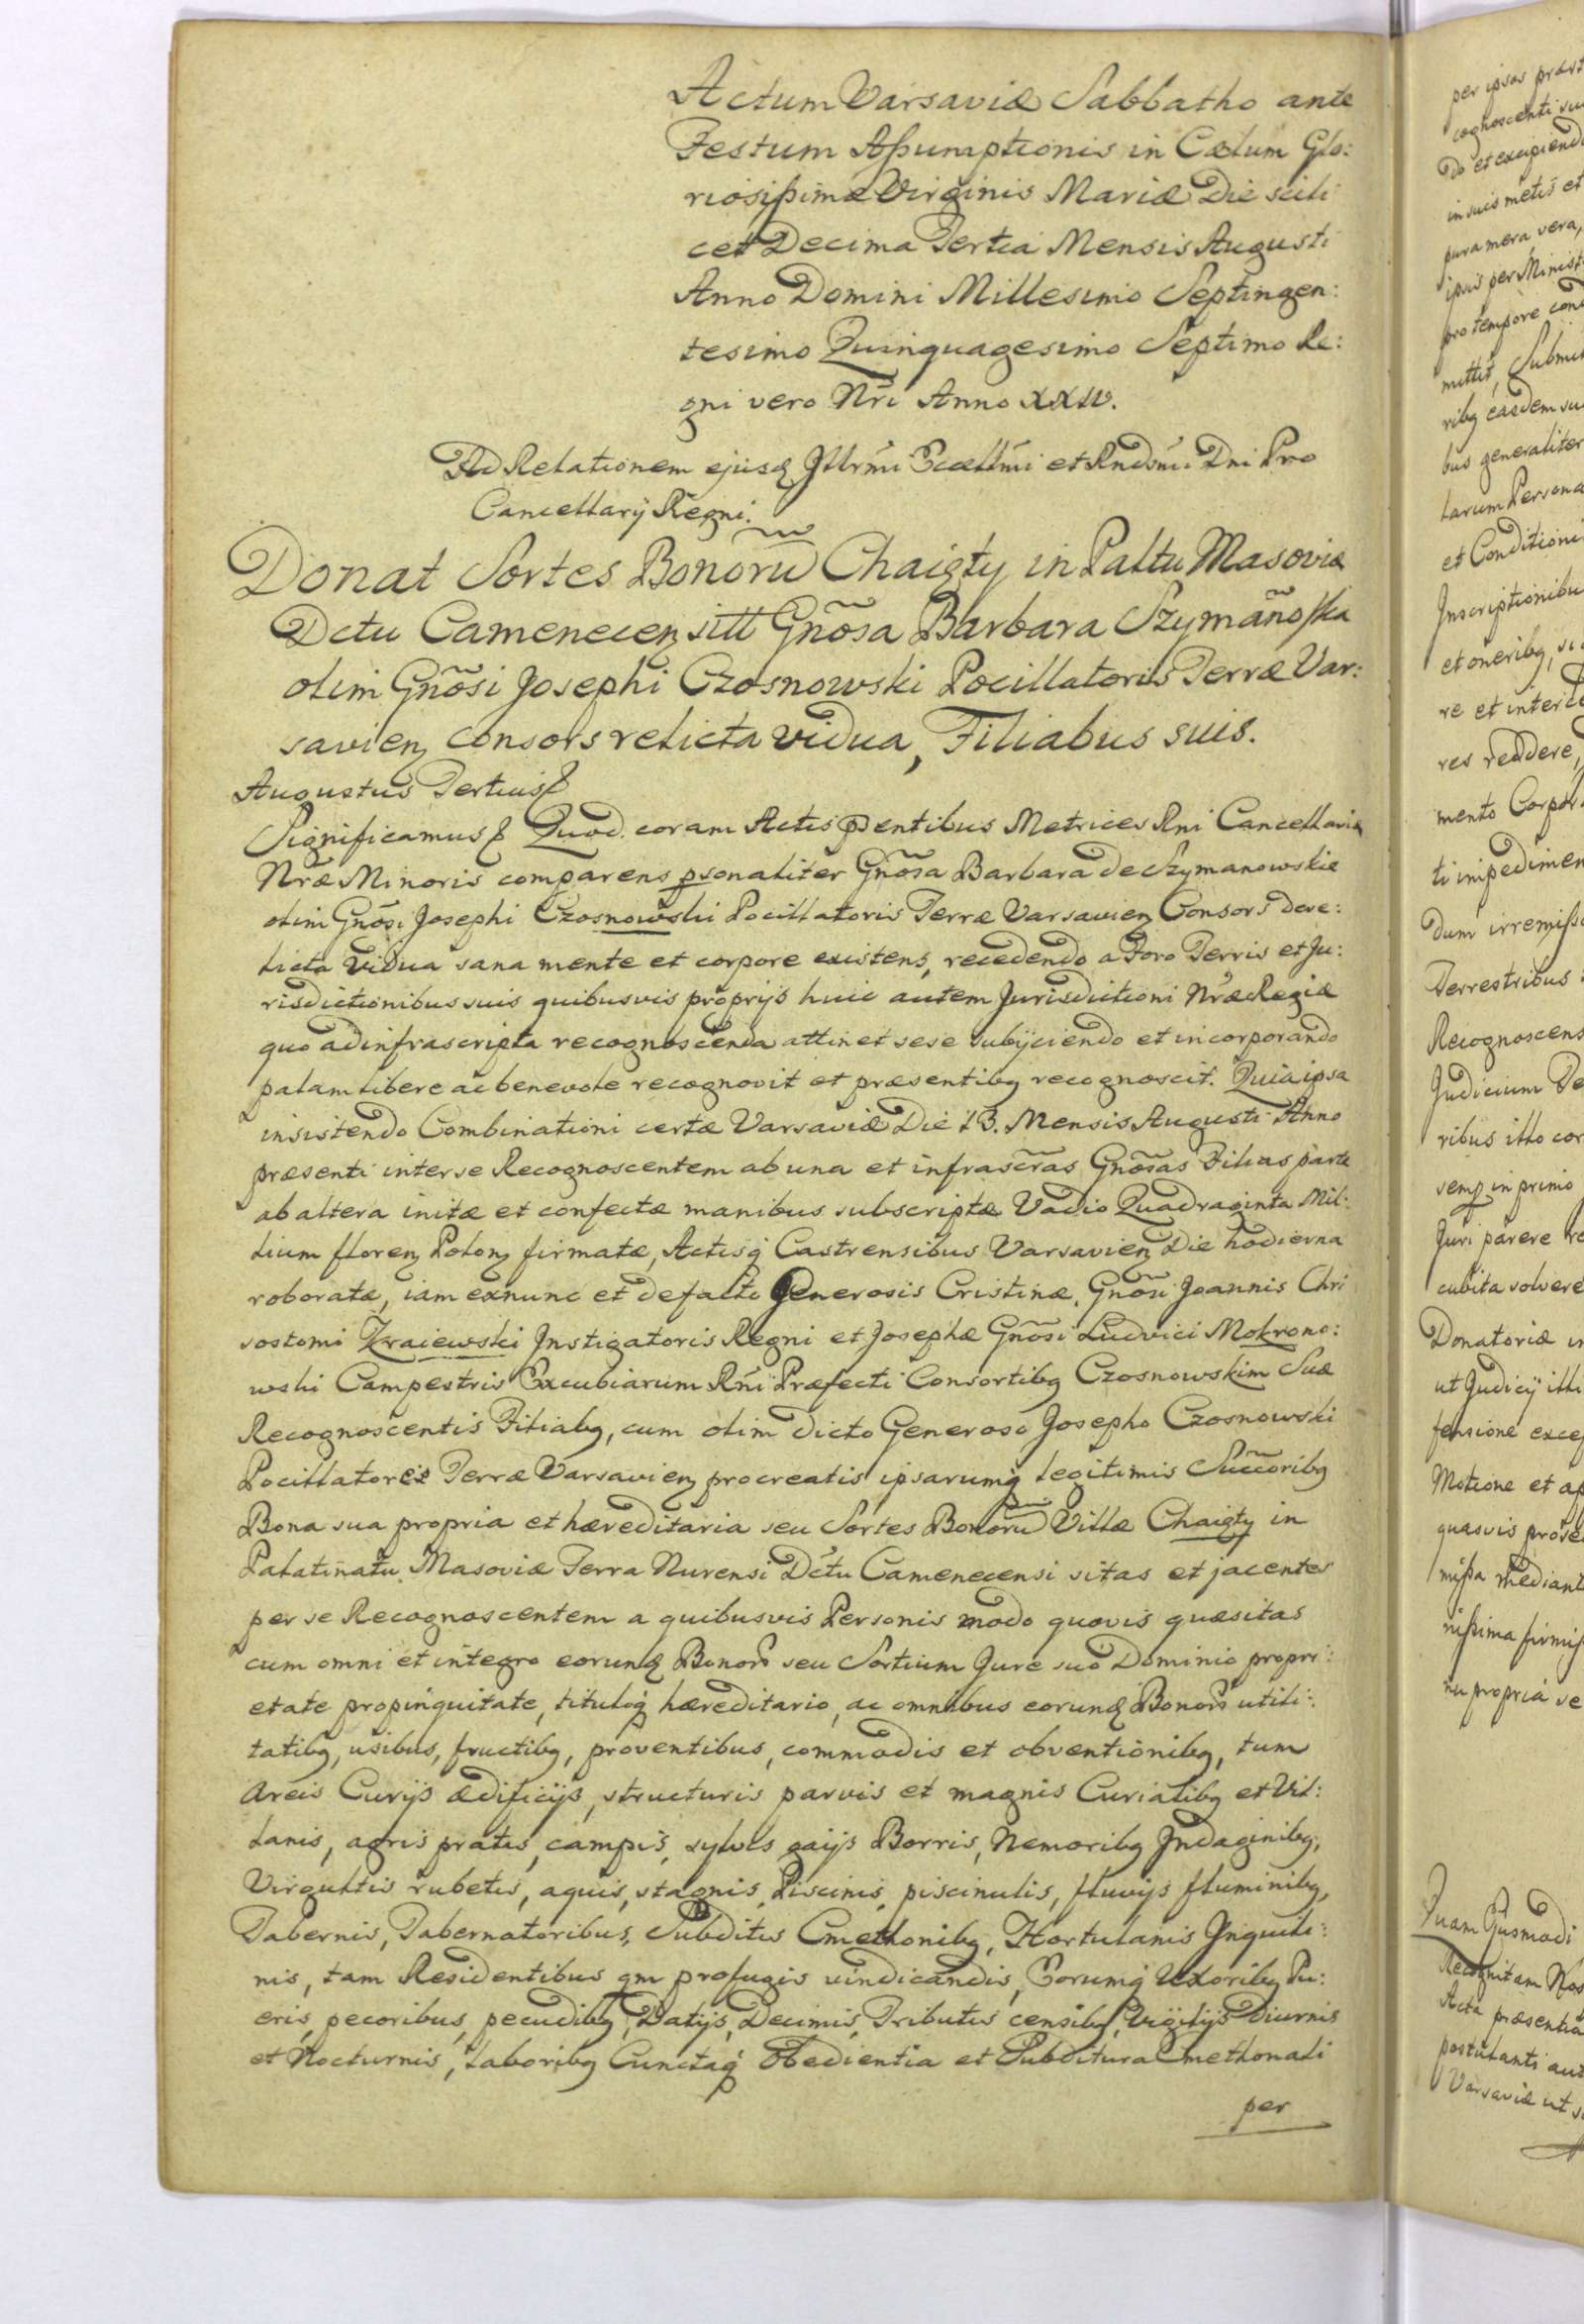 Actum Varsaviæ Sabbatho ante
Festum Assumptionis in Cælum Glo:
riosissimæ Virginis Mariæ Die scili
cet Decima Tertia Mensis Augusti
Anno Domini Millesimo Septingen:
tesimo Quinquagesimo Septimo Re:
gni vero Nri Anno XXIV.
Ad Relationem ejusq Illrmi Excellmi et Rndsmi Dni Pro
Cancellarij Regni.
Donat Sortes Bonorũ Chaięty in Paltu Masoviæ
Dctu Camenecen sitt Gnõsa Barbara Szymãnoska
olim Gnõsi Josephi Czosnowski Pocillatoris Terræ Var:
savien consors relicta vidua, Filiabus suis.
Augustus Tertius
Significamus Quod coram Actis pntibus Metrices Rni Cancellariæ
Nræ Minoris comparens psonaliter Gnõsa Barbara de Szymanowskie
olim Gnõsi Josephi Czosnowski Pocillatoris Terræ Varsavien Consors dere:
licta Vidua sana mente et corpore existens, recedendo a Foro Terris et Ju:
risdictionibus suis quibusvis proprijs huic autem Jurisdictioni Nræ Regiæ
quo ad infrascripta recognoscenda attinet sese subijciendo et incorporando
palam libere ac benevole recognovit et præsentibq recognoscit. Quia ipsa
insistendo Combinationi certæ Varsaviæ Die 13. Mensis Augusti Anno
præsenti inter se Recognoscentem ab una et infrascras Gnõsas Filias parte
ab altera initæ et confectæ manibus subscriptæ Vadio Quadraginta Mil:
lium floren Polon firmatæ, Actisq Castrensibus Varsavien Die hodierna
roboratæ, iam exnunc et defacto Generosis Cristinæ, Gnõsi Joannis Chri
sostomi Kraiewski Instigatoris Regni et Josephæ Gnõsi Ludvici Mokrono:
wski Campestris Excubiarum Rni Præfecti Consortibq Czosnowskim Suæ
Recognoscentis Filiabq, cum olim dicto Generoso Josepho Czosnowski
Pocillatore Terræ Varsavien procreatis ipsarumq legitimis Succoribq
Bona sua propria et hæreditaria seu Sortes Bonorũ Villæ Chaięty in
Palatinatu Masoviæ Terra Nurensi Dctu Camenecensi sitas et jacentes
per se Recognoscentem a quibusvis Personis modo quovis quæsitas
cum omni et integro eorunq Bonor seu Sortium Jure suo Dominio propri:
etate propinquitate, tituloq hæreditario, ac omnibus eorunq Bonor utili:
tatibq, usibus, fructibq, proventibus, commodis et obventionibq, tum
areis Curijs ædificijs, structuris parvis et magnis Curialibq et Vil:
lanis, agris pratis, campis, sylvis gaijs Borris, Nemoribq Indaginibq,
Virgultis rubetis, aquis, stagnis, Piscinis, piscinulis, fluvijs fluminibq,
Tabernis, Tabernatoribus, Subditis Cmethonibq, Hortulanis Inquili:
nis, tam Residentibus qm profugis vindicandis, Eorumq Uxoribq Pu:
eris, pecoribus, pecudibq, Datijs, Decimis, Tributis censibq, Vigilijs Diurnis
et Nocturnis, laboribq Cunctaq Obedientia et Subditura Cmethonali
per
per ipsos
cognoscenti
do et excipiendo
in suis metis et
pura mera, vera,
ipsis per
pro tempore
mittit,
ribq easdem
bus generaliter
larum
et
et oneribq,
re et
res reddere,
mento
ti
dum
Terrestribus
Recognoscens
Judicium
ribus illo
semp in primo
Juri parere
cubita solvere
Donatoriæ
ut Judicij illi
fensione
Motione et
quasvis
missa
nissima
nu propria
Quam
Recognitam
Acta
postulanti
Varsaviæ ut